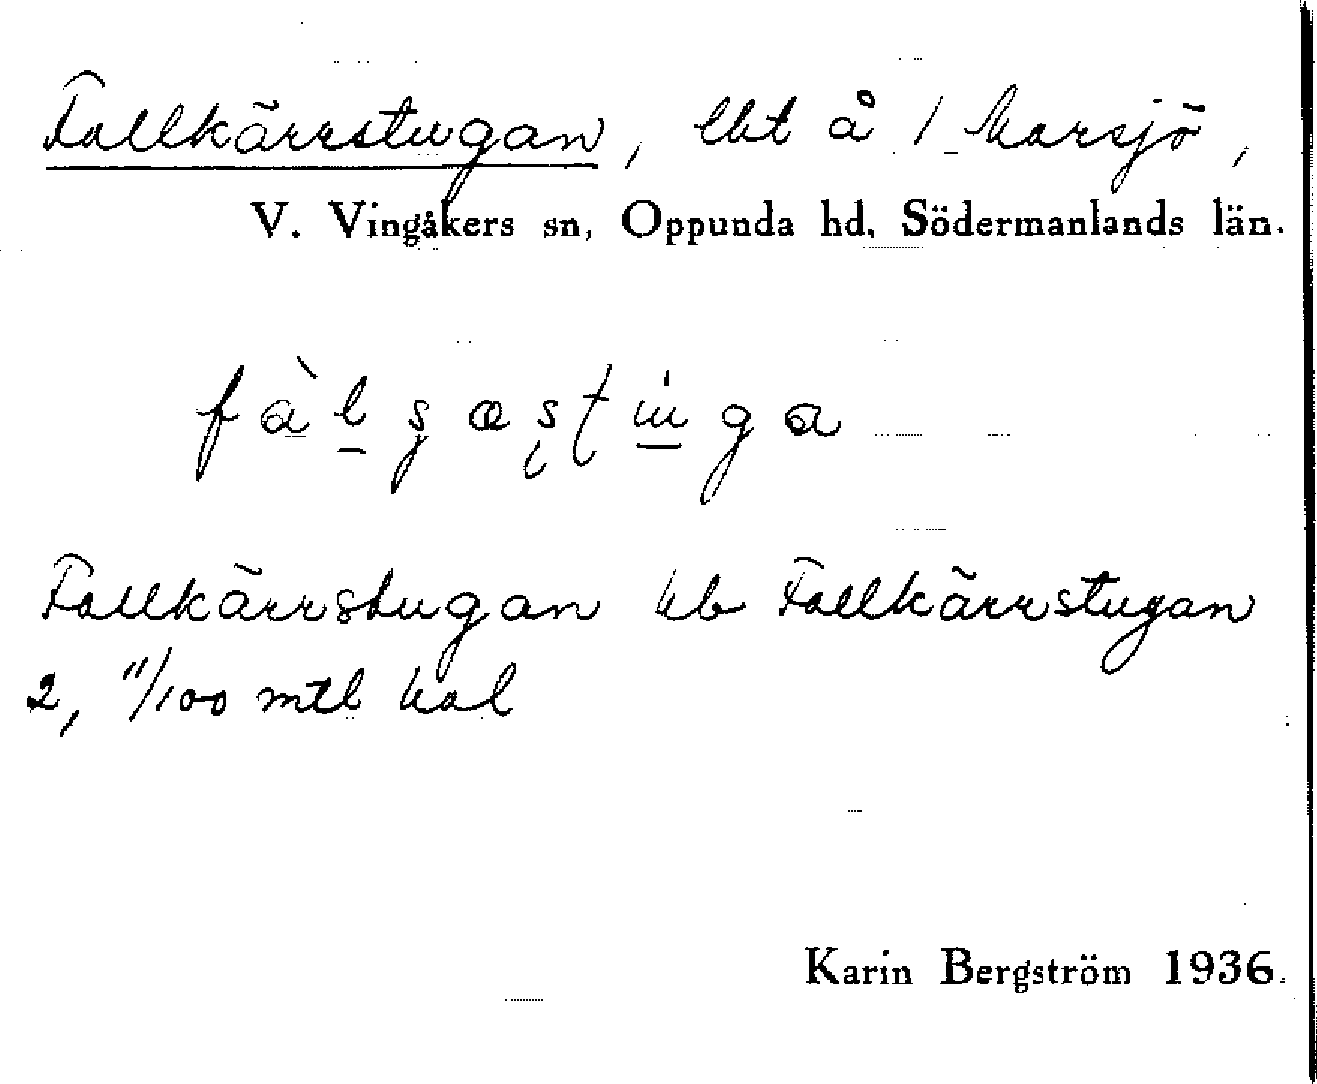 Fallkärrstugan, lht å 1 Marsjö,
V. Vingåkers sn, Oppunda hd, Södermanlands län.
Fallkärrstugan kb Fallkärrstugan
2, 11/100 mtl kal
Karin Bergström 1936.